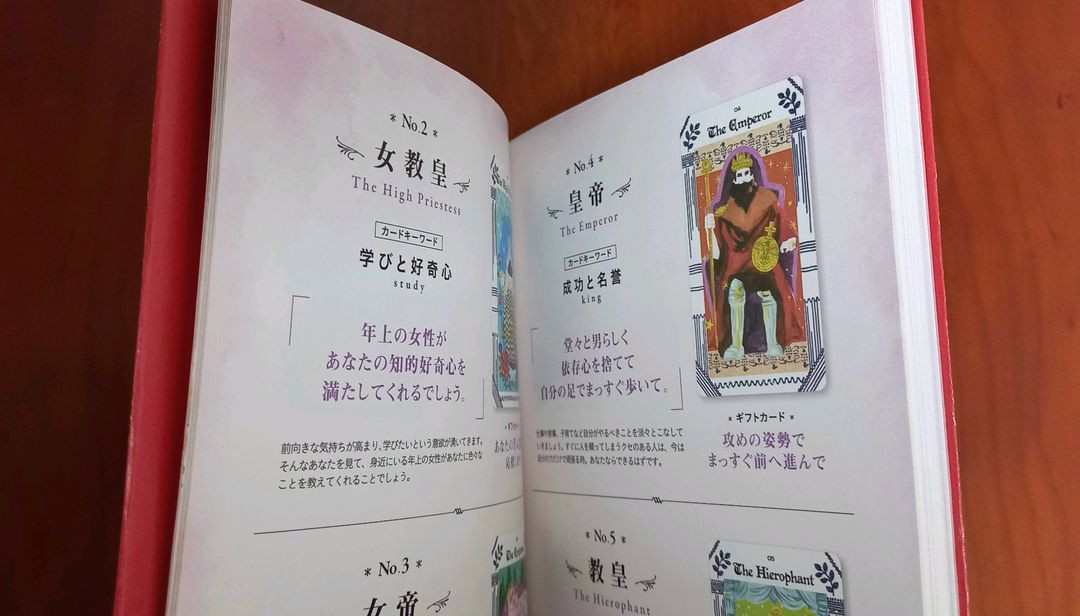 * No.2 *
女教皇
The High Priestess
カードキーワード
学びと好奇心
study
年上の女性が
あなたの知的好奇心を
満たしてくれるでしょう。
前向きな気持ちが高まり、学びたいという意欲が湧いてきます。
そんなあなたを見て、身近にいる年上の女性があなたに色々な
ことを教えてくれることでしょう。
* No.3 *
女帝
* No.4 *
皇帝
The Emperor
カードキーワード
成功と名誉
king
堂々と男らしく
依存心を捨てて
自分の足でまっすぐ歩いて。
仕事や家事、子育てなど自分がやるべきことを淡々とこなして
いきましょう。すぐに人を頼ってしまうクセのある人は、今は
自分の力だけで頑張る時。あなたならできるはずです。
04
The Emperor
* ギフトカード *
攻めの姿勢で
まっすぐ前へ進んで
* No.5 *
教皇
The Hierophant
05
The Hierophant